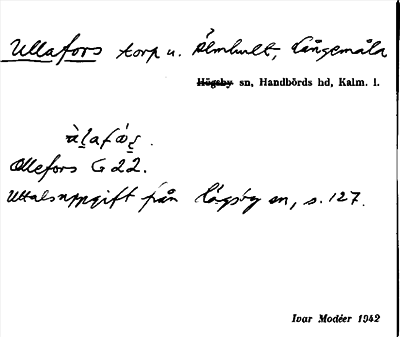 Ullafors torp u. Älmhult, Långemåla
Högsby sn, Handbörds hd, Kalm. l.
Ollefors G 22.
Uttalsuppgift från Högsby sn, s. 127.
Ivar Modéer 1942